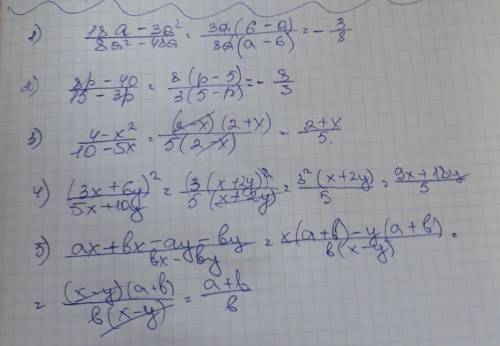 1) (18a - 3a²)/(8a² - 48a) = (3a(6 - a))/(8a(a - 6)) = -3/8
2) (8p - 40)/(15 - 3p) = (8(p - 5))/(3(5 - p)) = -8/3
3) (4 - x²)/(10 - 5x) = ((2 - x)(2 + x))/(5(2 - x)) = (2 + x)/5.
4) (3x + 6y)²/(5x + 10y) = (3(x + 2y))²/(5(x + 2y)) = (3²(x + 2y))/5 = (9x + 18y)/5
5) (ax + bx - ay - by)/(bx - by) = (x(a + b) - y(a + b))/(b(x - y)) =
= ((x - y)(a + b))/(b(x - y)) = (a + b)/b